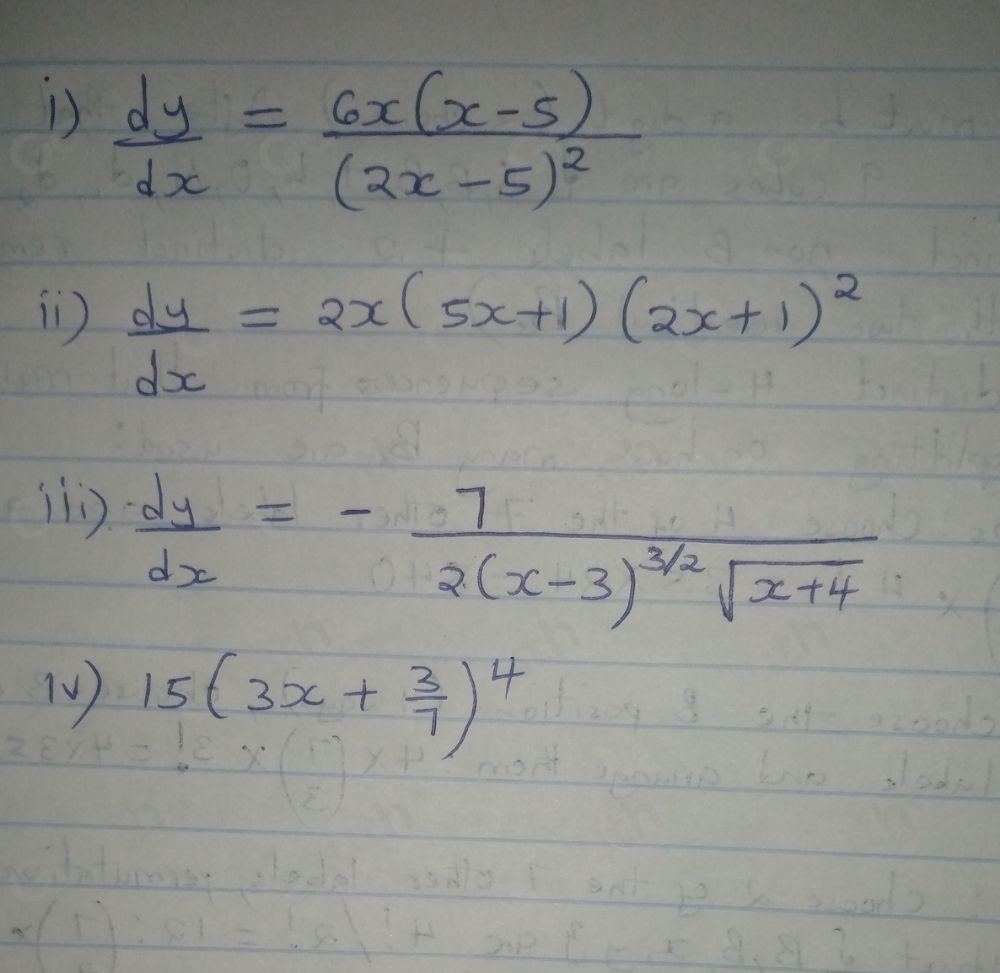 i) dy/dx = 6x(x-5)/(2x-5)²
ii) dy/dx = 2x(5x+1)(2x+1)²
iii) dy/dx = - 7/(2(x-3)^(3/2) √(x+4))
iv) 15(3x + 3/7)⁴